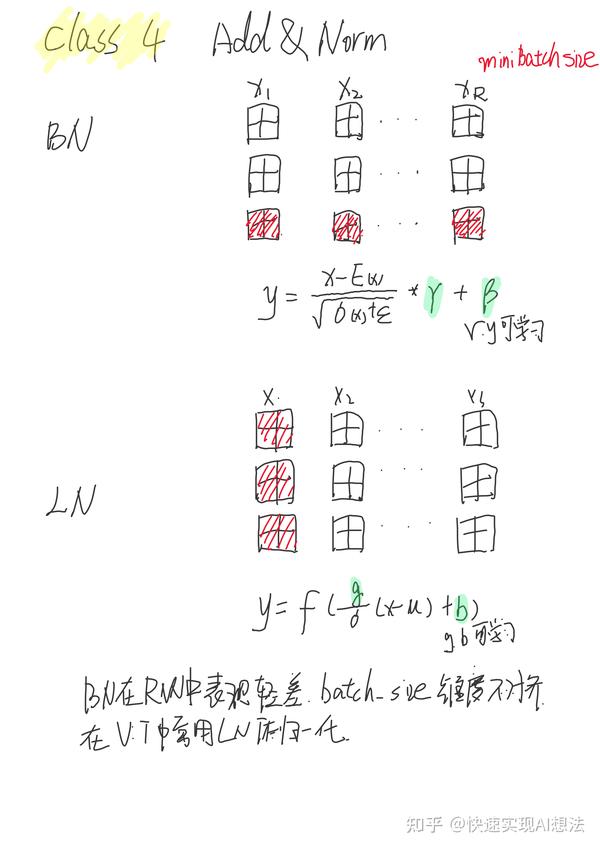 Class 4 Add & Norm
mini batch size
BN
x₁ x₂ ... x_R
y = (x-E(x)) / √(δ(x)+ε) * γ + β
可学习
x₁ x₂ ...
LN
y = f(g/δ (x-μ) + b)
g b 可学习
BN在RNN中表现较差.batch_size 维度不对齐
在 ViT中常用LN 归一化.
知乎 @快速实现AI想法